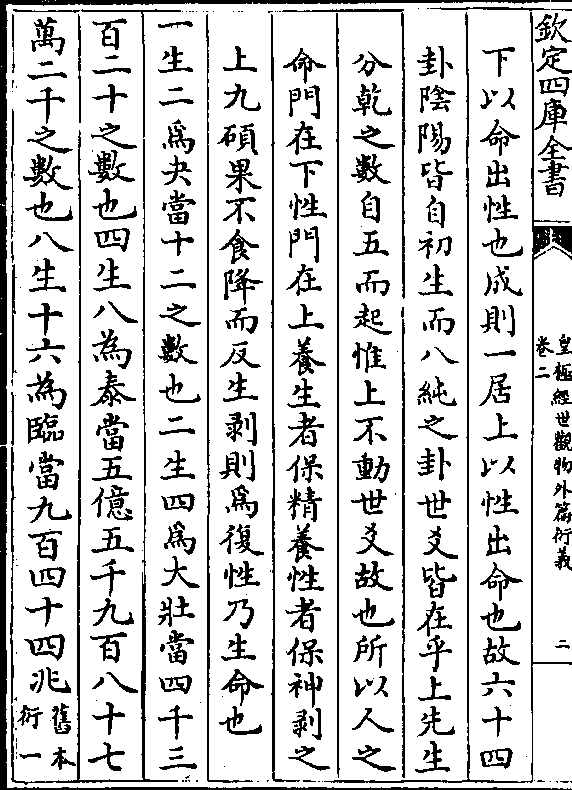 欽定四庫全書
皇極經世觀物外篇衍義
卷二
二
下以命出性也成則一居上以性出命也故六十四
卦陰陽皆自初生而八純之卦世爻皆在乎上先生
分乾之數自五而起惟上不動世爻故也所以人之
命門在下性門在上養生者保精養性者保神剥之
上九碩果不食降而反生剥則爲復性乃生命也
一生二爲夬當十二之數也二生四爲大壯當四千三
百二十之數也四生八為泰當五億五千九百八十七
萬二千之數也八生十六為臨當九百四十四兆舊本
衍一